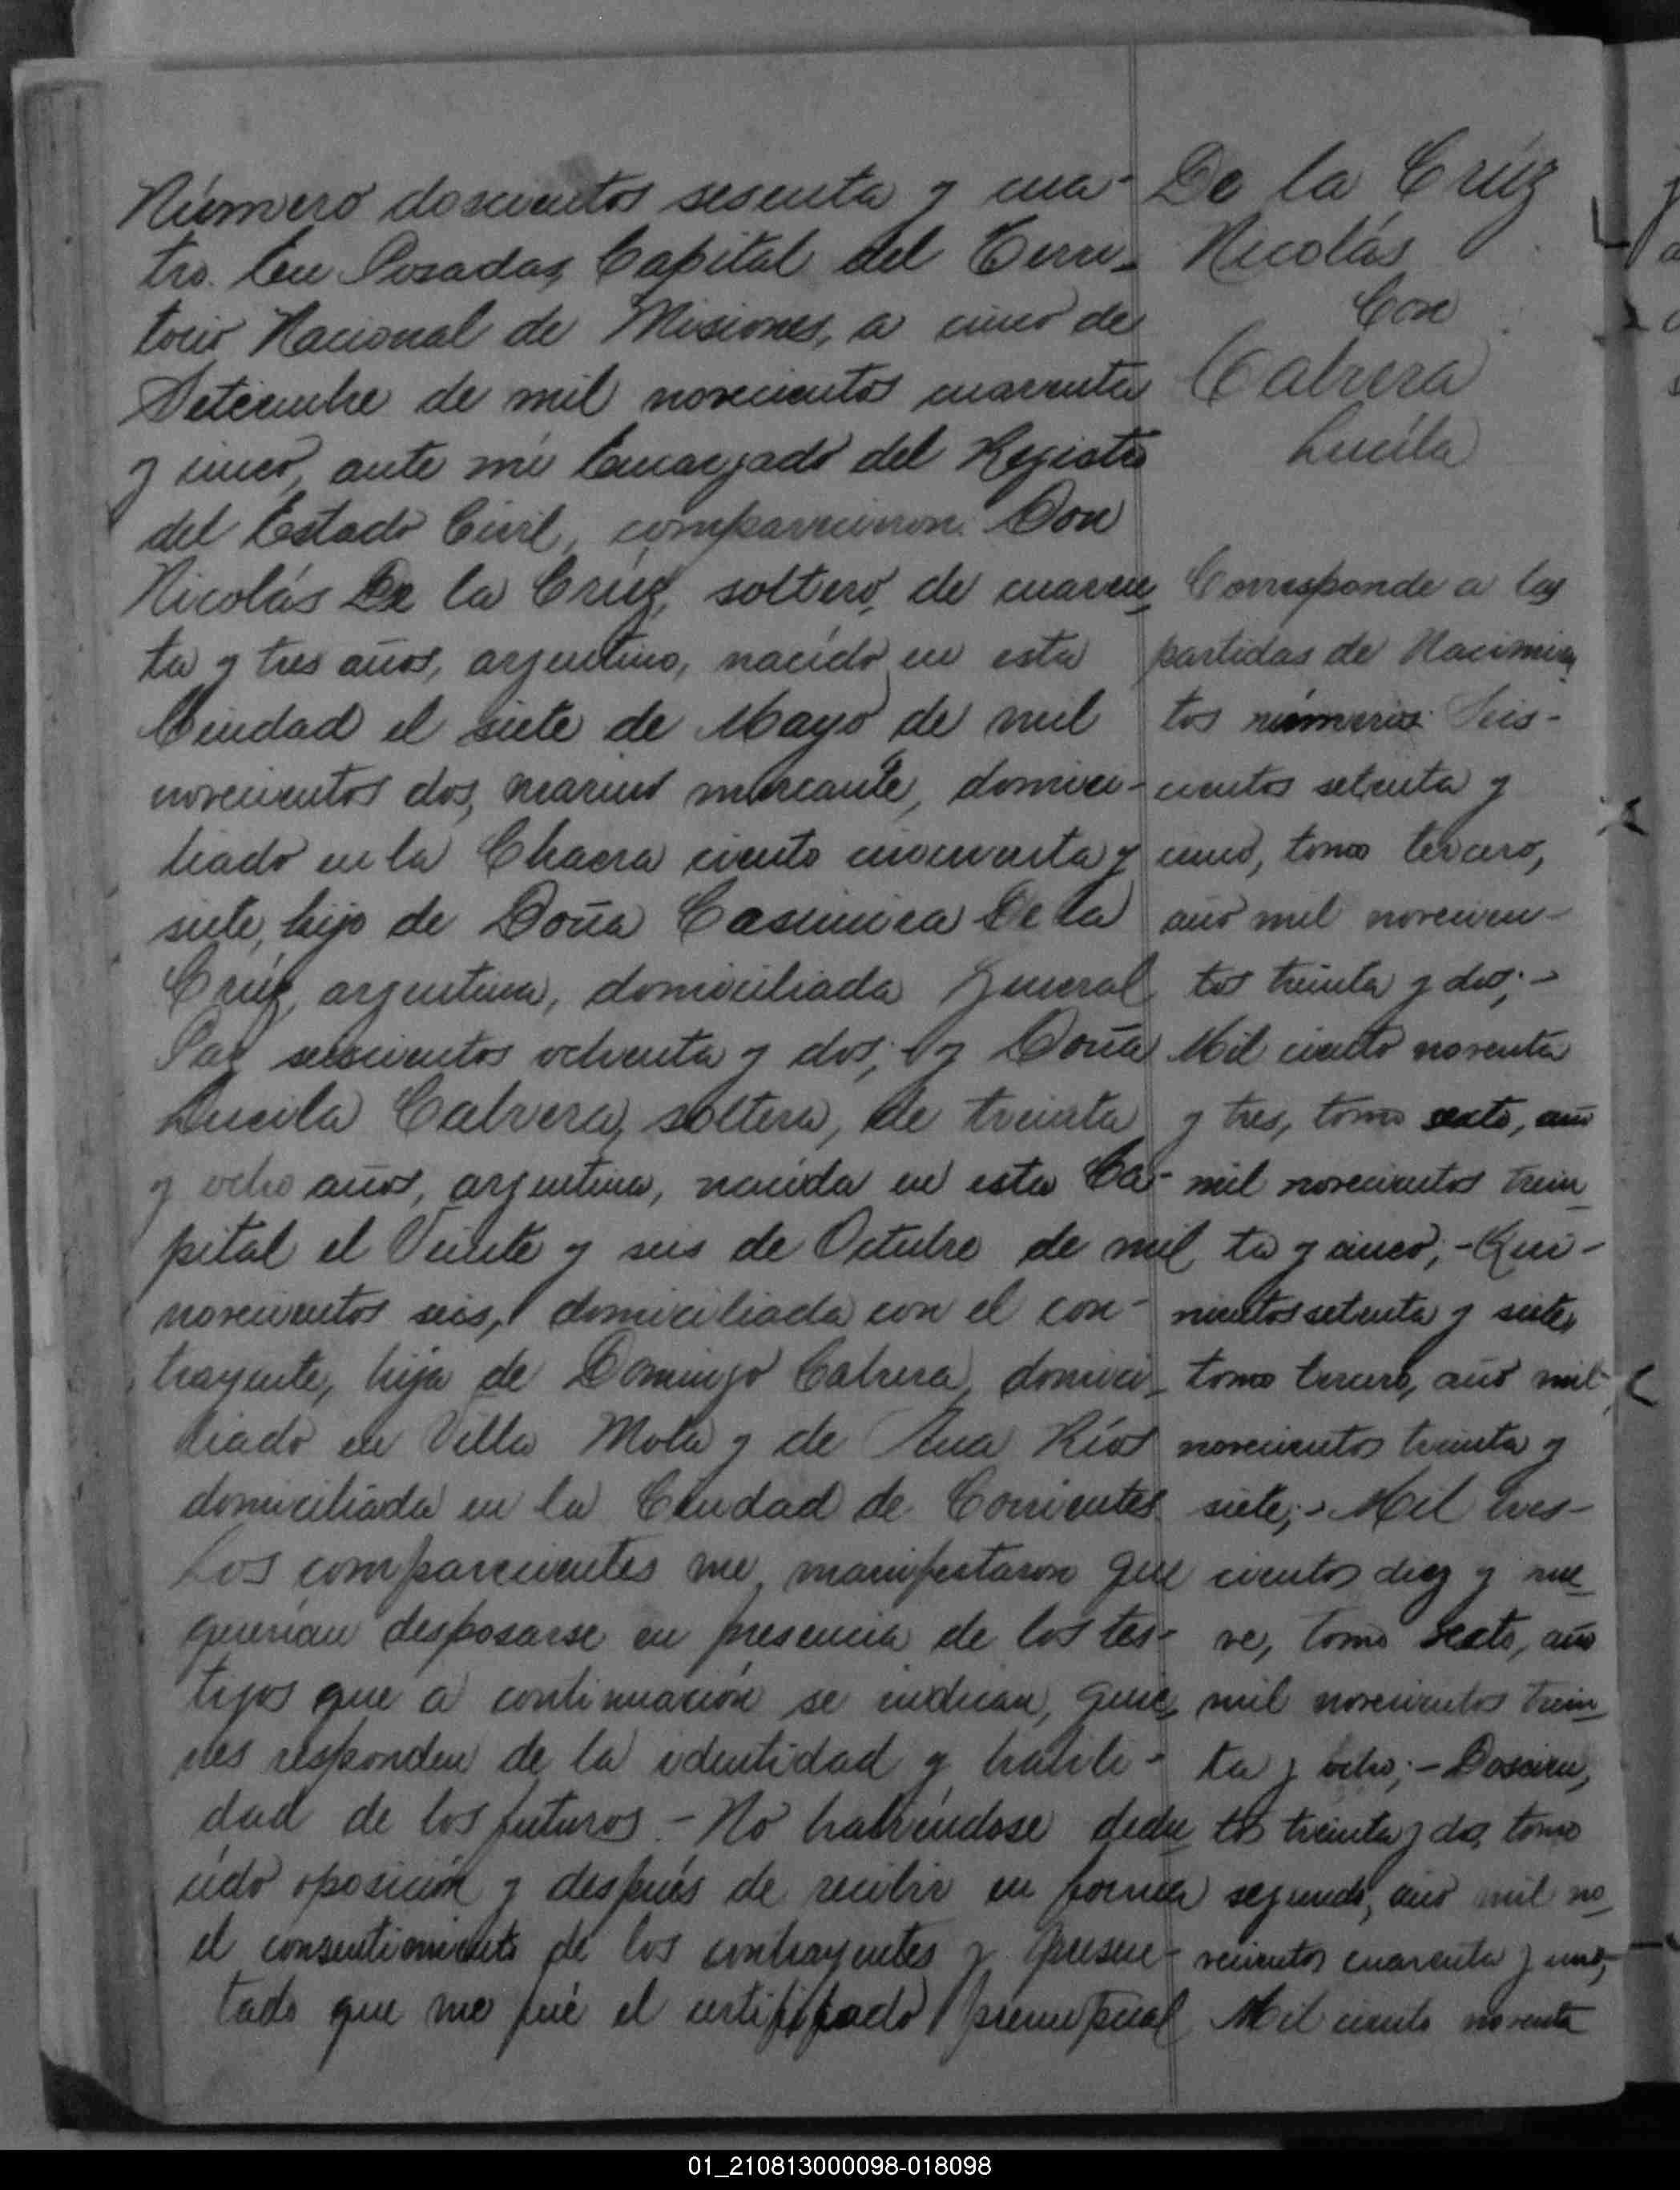 Número doscientos sesenta y cua-
tro. En Posadas, Capital del Terri-
torio Nacional de Misiones, a cinco de
Setiembre de mil novecientos cuarenta
y cinco, ante mi Encargado del Registro
del Estado Civil, comparecieron: Don
Nicolás De la Crúz, soltero, de cuaren_
ta y tres años, argentino, nacido en esta
Ciudad el siete de Mayo de mil
novecientos dos, marino mercante, domici-
liado en la Chacra ciento cincuenta y
siete, hijo de Doña Casimira De la
Crúz, argentina, domiciliada General
Paz seiscientos ochenta y dos; y Doña
Lucila Cabrera, soltera, de treinta
y ocho años, argentina, nacida en esta Ca-
pital el Veinte y seis de Octubre de mil
novecientos seis, domiciliada con el con-
trayente, hija de Domingo Cabrera, domici_
liado en Villa Mola y de Ana Ríos
domiciliada en la Ciudad de Corrientes.
Los comparecientes me manifestaron que
querían desposarse en presencia de los tes-
tigos que a continuación se indican, quie_
nes responden de la identidad y habili-
dad de los futuros.- No habiéndose dedu_
cido oposición y después de recibir en forma
el consentimiento de los contrayentes y presen-
tado que me fué el certificado prenupcial
De la Crúz
Nicolás
Con
Cabrera
Lucila
Corresponde a las
partidas de Nacimien_
tos números: Seis-
cientos setenta y
cinco, tomo tercero,
año mil novecien-
tos treinta y dos;-
Mil ciento noventa
y tres, tomo sexto, año
mil novecientos trein_
ta y cinco;-Qui-
nientos setenta y siete,
tomo tercero, año mil
novecientos treinta y
siete;- Mil tres-
cientos diez y nue_
ve, tomo sexto, año
mil novecientos trein_
ta y ocho;- Doscien_
tos treinta y dos, tomo
segundo, año mil no_
vecientos cuarenta y uno;-
Mil ciento noventa
01_210813000098-018098